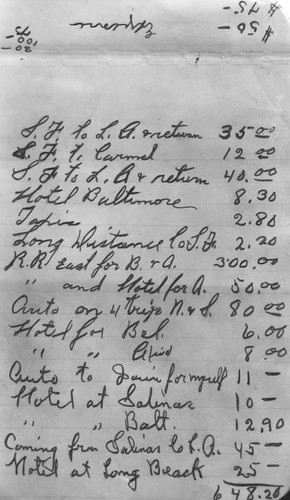 $ 75-
$ 50-
Expresn
75-
100
20-
S.F. to L.A. & return 35.00
S.F. to Carmel 12.00
S.F. to L.A. & return 40.00
Hotel Baltimore 8.30
Taxis 2.80
Long Distance to S.F. 2.20
R.R. East for B. & A. 300.00
" and Hotel for A. 50.00
Auto on 4 trips N. & S. 80.00
Hotel for Bel. 6.00
" " 8.00
Auto to for myself 11 -
Hotel at Salinas 10 -
" " Balt. 12.90
Coming from Salinas to L.A. 45 -
Hotel at Long Beach 25 -
648.20